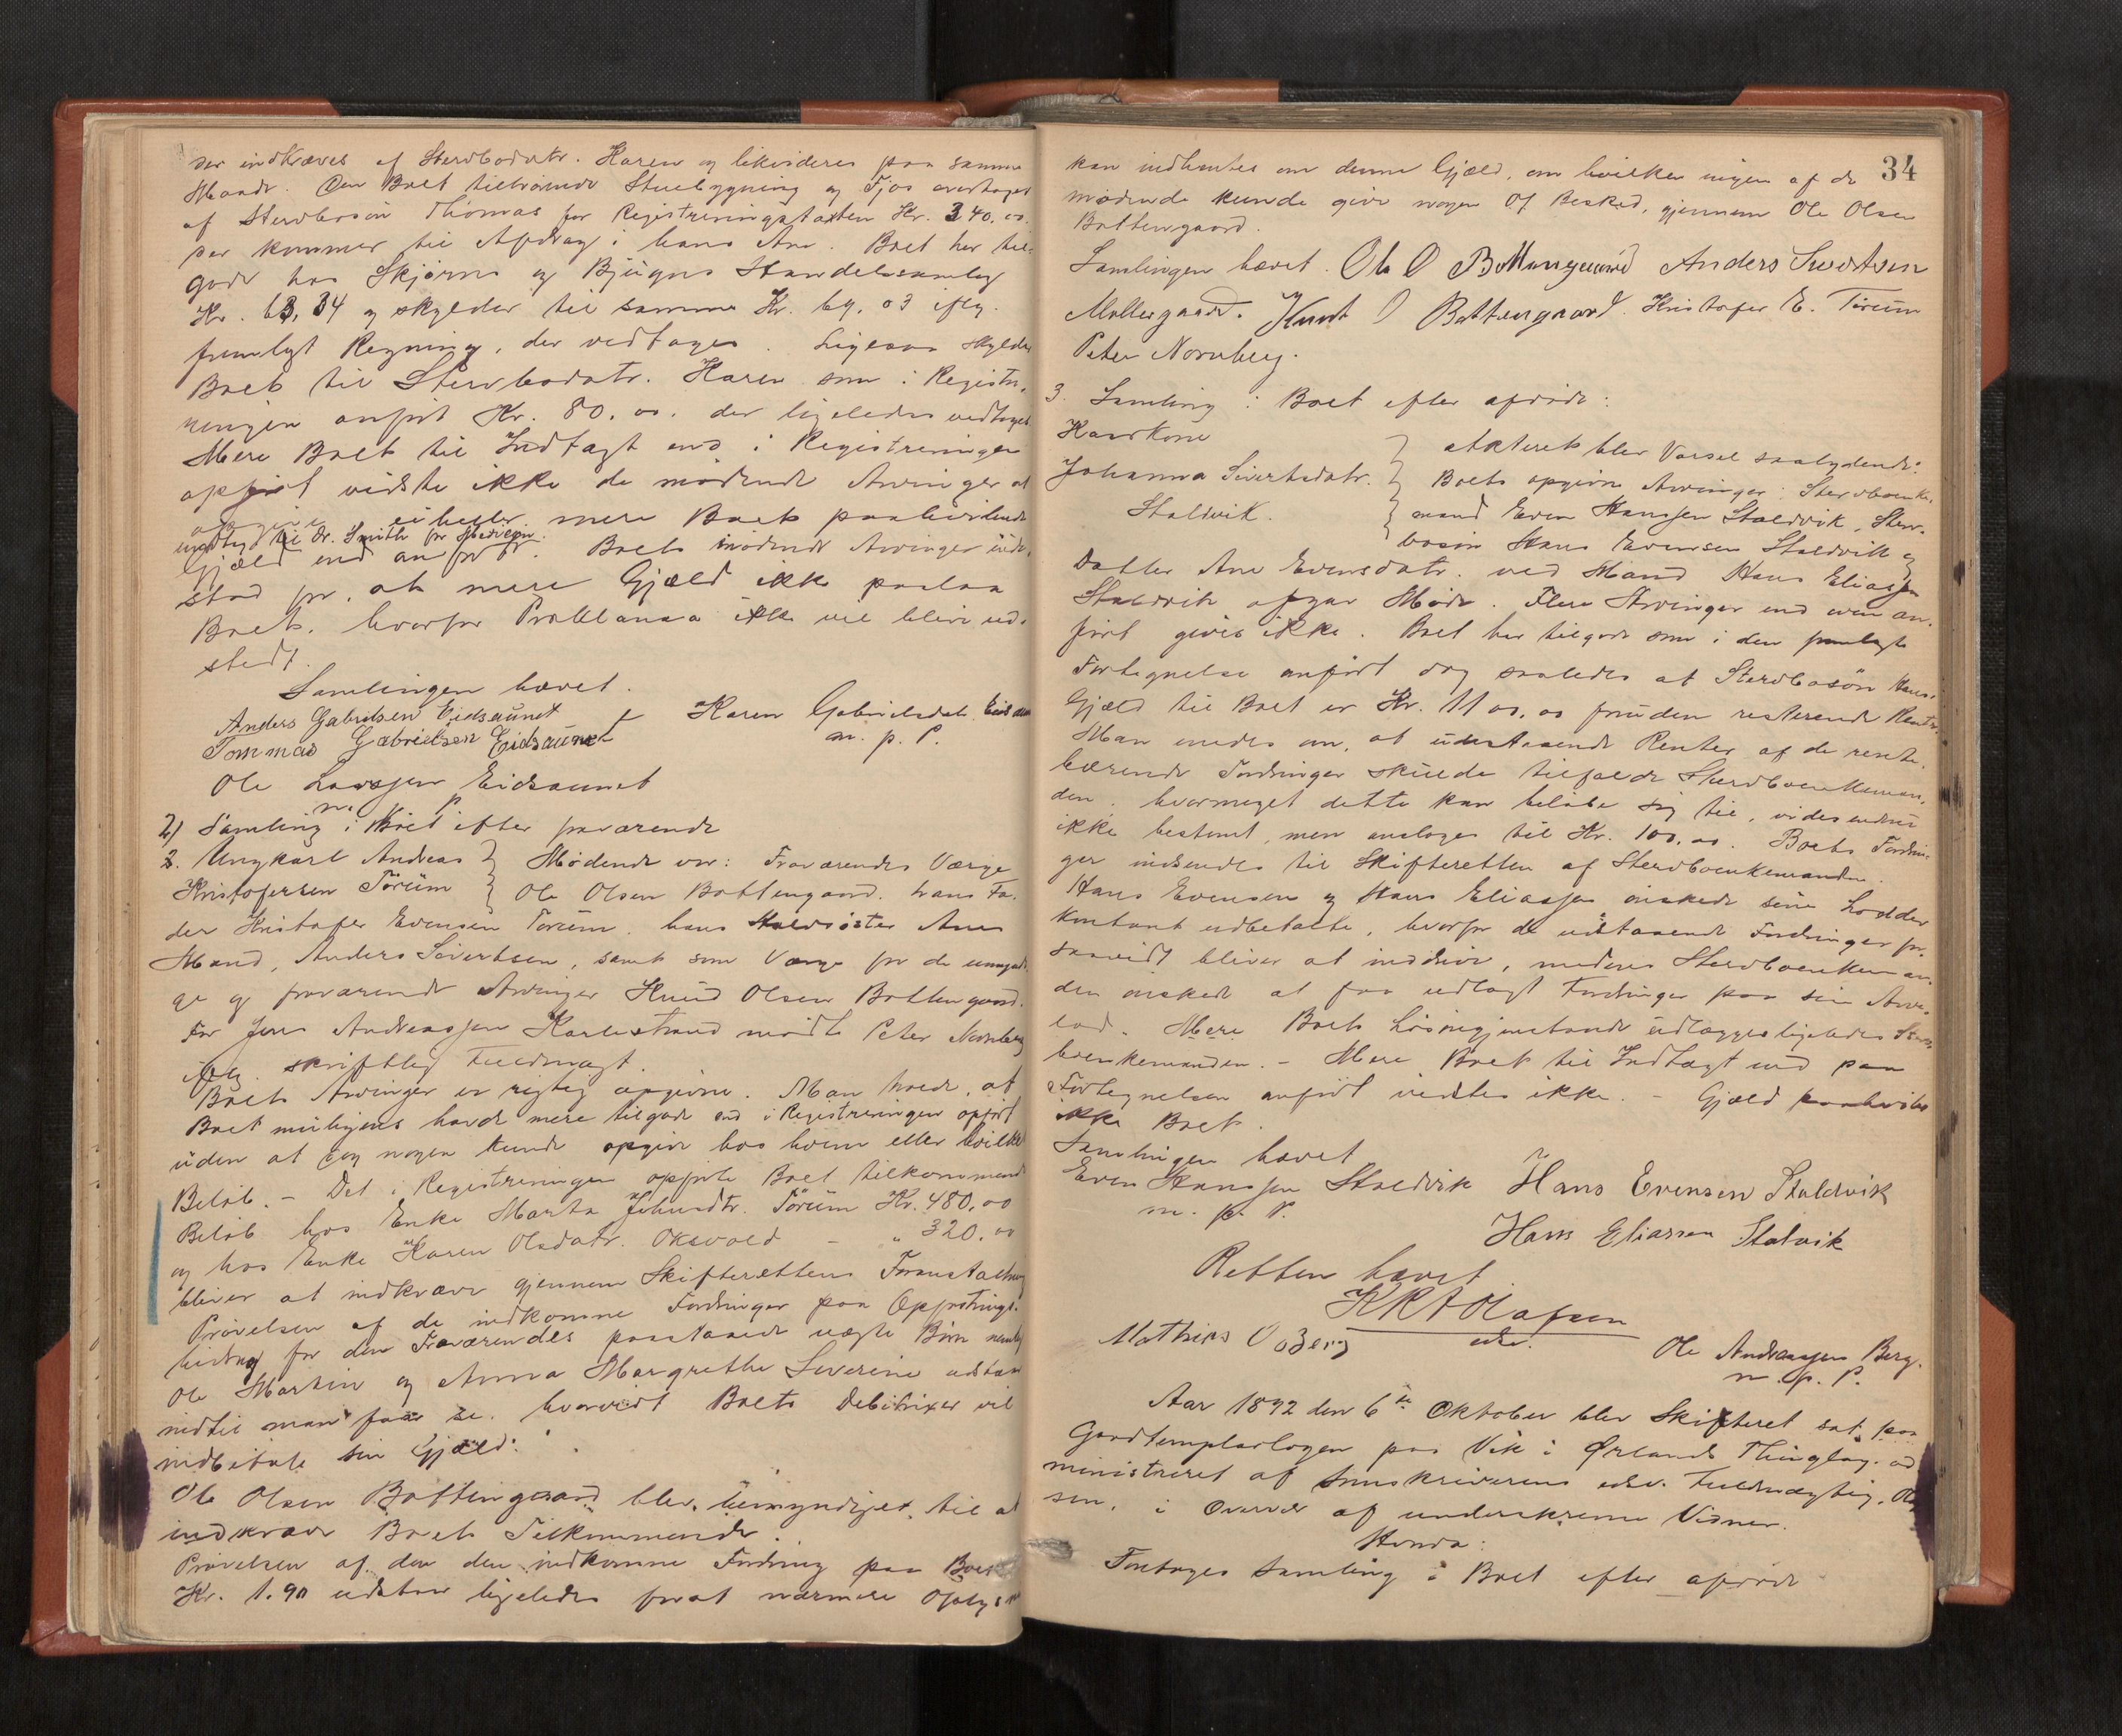 der indkræves af Sterbodatr. Karen og likvideres paa samme
Maade. Den Boet tilhørende Stuebygning og Fjøs overtages
af Stervbosøn Thomas for Registreringstaxten Kr. 340.00.
der kommer til Afdrag i hans Arv. Boet har til-
gode hos Skjørns og Bjugns Handelssamlag
Kr. 63,34 og skylder til samme Kr. 69.03 iflg.
fremlagt Regning, der vedtages. Ligesaa skylder
Boet til Stervbodatr. Karen som i Registre-
ringen anført Kr. 80.00. der ligeledes vedtages
Mere Boet til Indtægt end i Registreringen
opført vidste ikke de mødende Arvinger at
opgive ei heller mere Boet paahvilende
undtagt til Dr. Smith for Medicin
Gjæld end anført. Boets mødende Arvinger inde-
stod for, at mere Gjæld ikke paalaa
Boet, hvorfor Proklama ikke vil blive ud-
stedt.
Samlingen hævet.
Anders Gabrielsen Eidsaunet Karen Gabrielsdatr. Eidsaun
Tommas Gabrielsen Eidsaunet m. p. P.
Ole Larssen Eidsaunet
m. p.
2) Samling i Boet efter fraværende
2. Ungkarl Andreas Mødende var: Fraværendes Værge
Kristofersen Tørum Ole Olsen Bottengaard. hans Fa-
der Kristofer Evensen Tørum, hans Halvsøster Anes
Mand, Anders Sivertsen, samt som Værge for de umyndi-
ge og fraværende Arvinger Knud Olsen Bottengaard.
For Jens Andreassen Karlestrand mødte Peter Nornberg
iflg. skriftlig Fuldmagt.
Boets Arvinger er rigtig opgivne. Man troede, at
Boet muligens havde mere tilgode end i Registreringen opført
uden at dog nogen kunde opgive hos hvem eller hvilket
Beløb. - Det i Registreringen opførte Boet tilkommende
Beløb hos Enke Marta Johnsdtr. Tørum Kr. 480,00
og hos Enke Karen Olsdatr. Oksvold - " 320.00
bliver at indkræve gjennem Skifterettens Foranstaltning
Prøvelsen af de indkomne Fordringer paa Opfostrings-
bidrag for den Fraværendes paastaaede uægte Børn nemlig
Ole Martin og Anna Margrethe Severine udstaar
indtil man faar se, hvorvidt Boets Debitrixer vil
indbetale sin Gjæld.
Ole Olsen Bottengaard blev bemyndiget til at
indkræve Boets Tilkommende.
Prøvelsen af den den indkomne Fordring paa Boet
Kr. 1.90 udstaar ligeledes forat nærmere Oplys
34
kan indhentes om denne Gjæld, om hvilken ingen af de
mødende kunde give nogen Besked, gjennem Ole Olsen
Bottengaard.
Samlingen hævet. Ole O Bottengaard Anders Sivertsen
Møllergaard. Knut O Bottengaard. Kristofer E. Tørum
Peter Nornberg.
3. Samling i Boet efter afdøde:
Kaarkone
Johanna Sivertsdatr. Akteret blev Varsel saalydende:
Staldvik. Boets opgivne Arvinger: Stervboenke-
mand Even Hanssen Staldvik, Sterv-
bosøn Hans Evensen Staldvik og
Datter Ane Evensdatr. ved Mand Hans Eliassen
Staldvik afgav Møde. Flere Arvinger end oven an-
ført gives ikke. Boet har tilgode som i den fremlagte
Fortegnelse anført dog saaledes at Stervbosøn Hans's
Gjæld til Boet er Kr. 1100.00 foruden resterende Renter.
Man enedes om, at udestaaende Renter af de rente-
bærende Fordringer skulde tilfalde Stervboenkeman-
den. hvormeget dette kan beløbe sig til, vides endnu
ikke bestemt, men ansloges til Kr. 100.00. Boets Fordrin-
ger indsendes til Skifteretten af Stervboenkemanden.
Hans Evensen og Hans Eliassen ønskede sine Lodder
kontant udbetalte, hvorfor de udestaaende Fordringer for-
saavidt bliver at inddrive, medens Stervboenkeman-
den ønskede at faa udlagt Fordringer paa sin Arve-
lod. Mere Boets Løsøregjenstande udlægges ligeledes Sterv-
boenkemanden. - Mere Boet til Indtægt end paa
Fortegnelsen anført vidstes ikke. - Gjæld paahviler
ikke Boet.
Samlingen hævet
Even Hanssen Staldvik Hans Evensen Staldvik
m. p. P.
Hans Eliassen Stalvik
Retten hævet
K R A Olafsen
Mathias O. Berg edsv. Ole Andreassen Berg.
m. p. P.
Aar 1892 den 6te Oktober blev Skifteret sat paa
Goodtemplarlogen paa Vik i Ørlands Thinglag. ad
ministreret af Sorenskriverens edsv. Fuldmægtig, Olaf
sen, i Overvær af underskrevne Vidner.
Hvorda:
Foretoges Samling i Boet efter afdøde